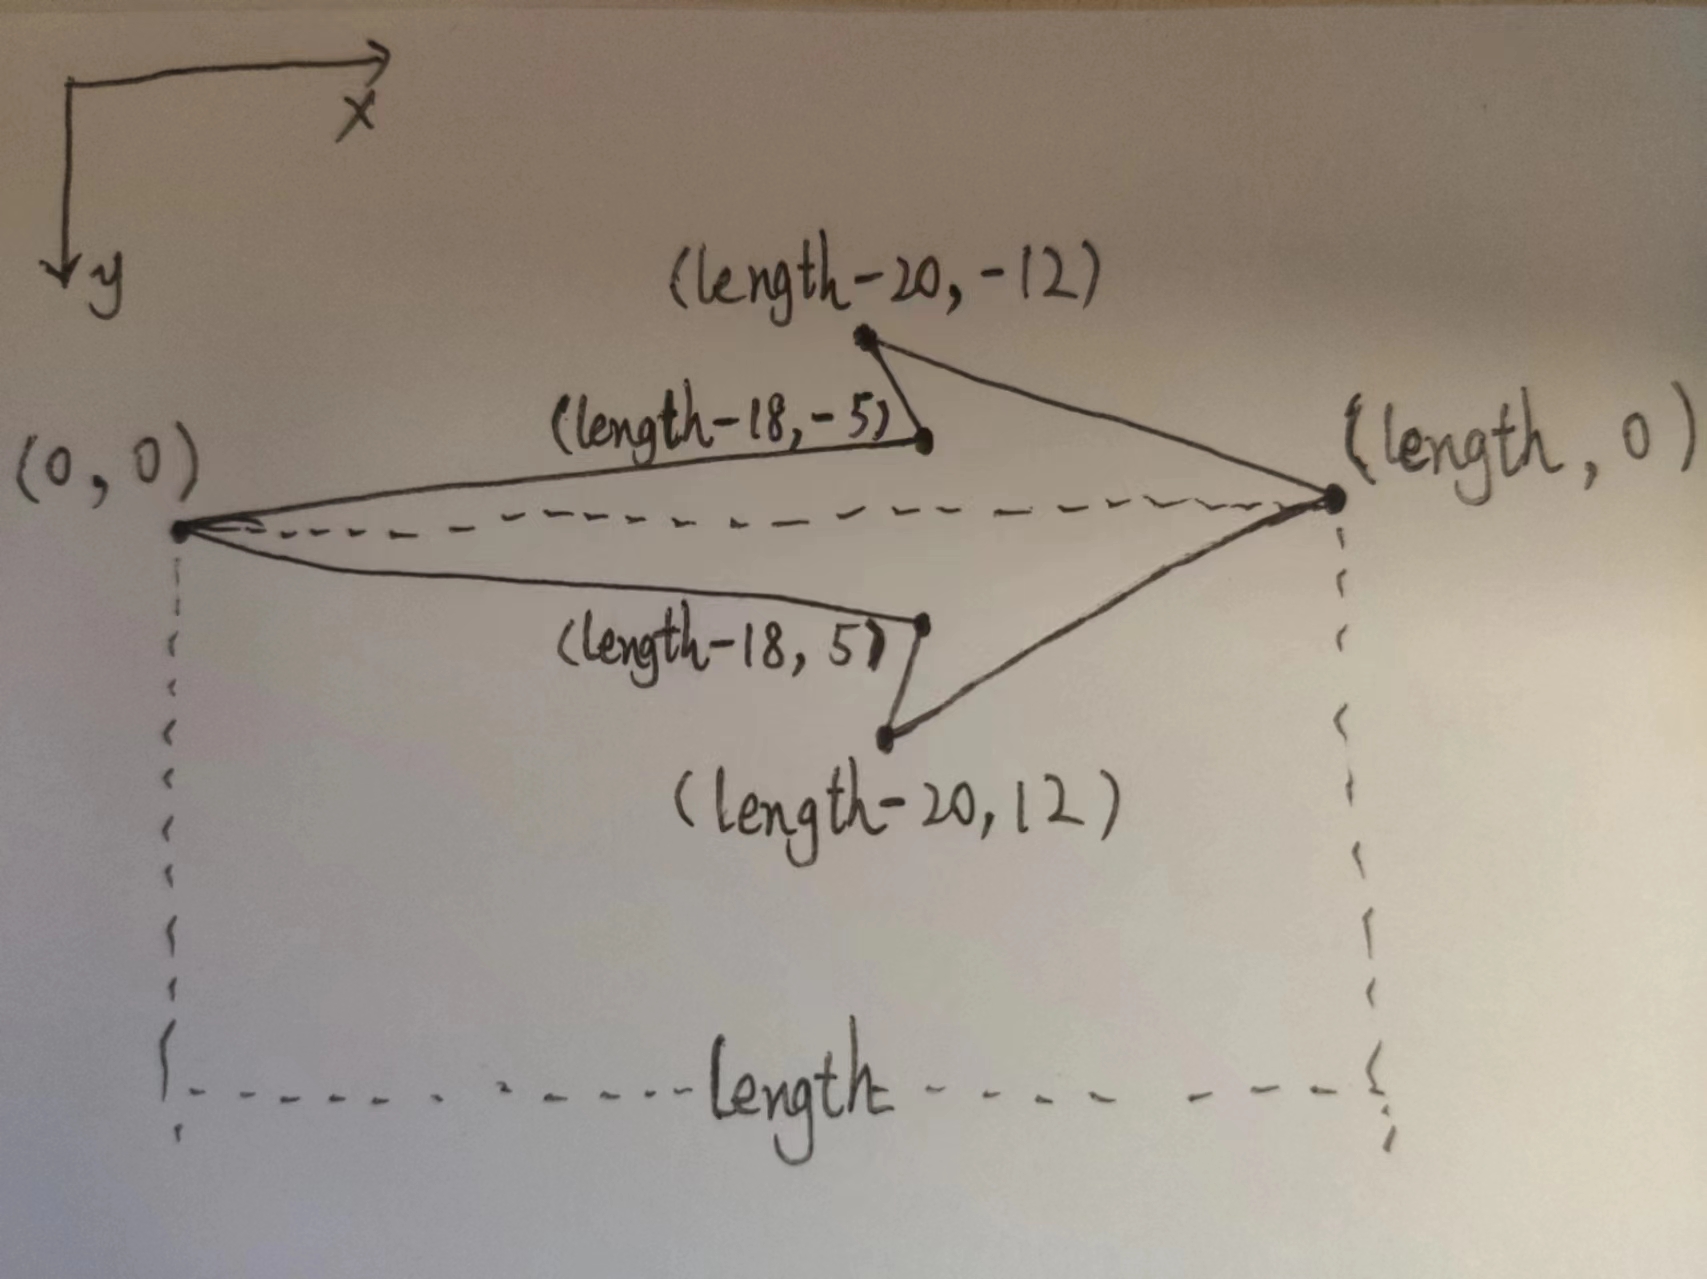 x
y
(length-20, -12)
(length-18, -5)
(0, 0)
(length, 0)
(length-18, 5)
(length-20, 12)
length